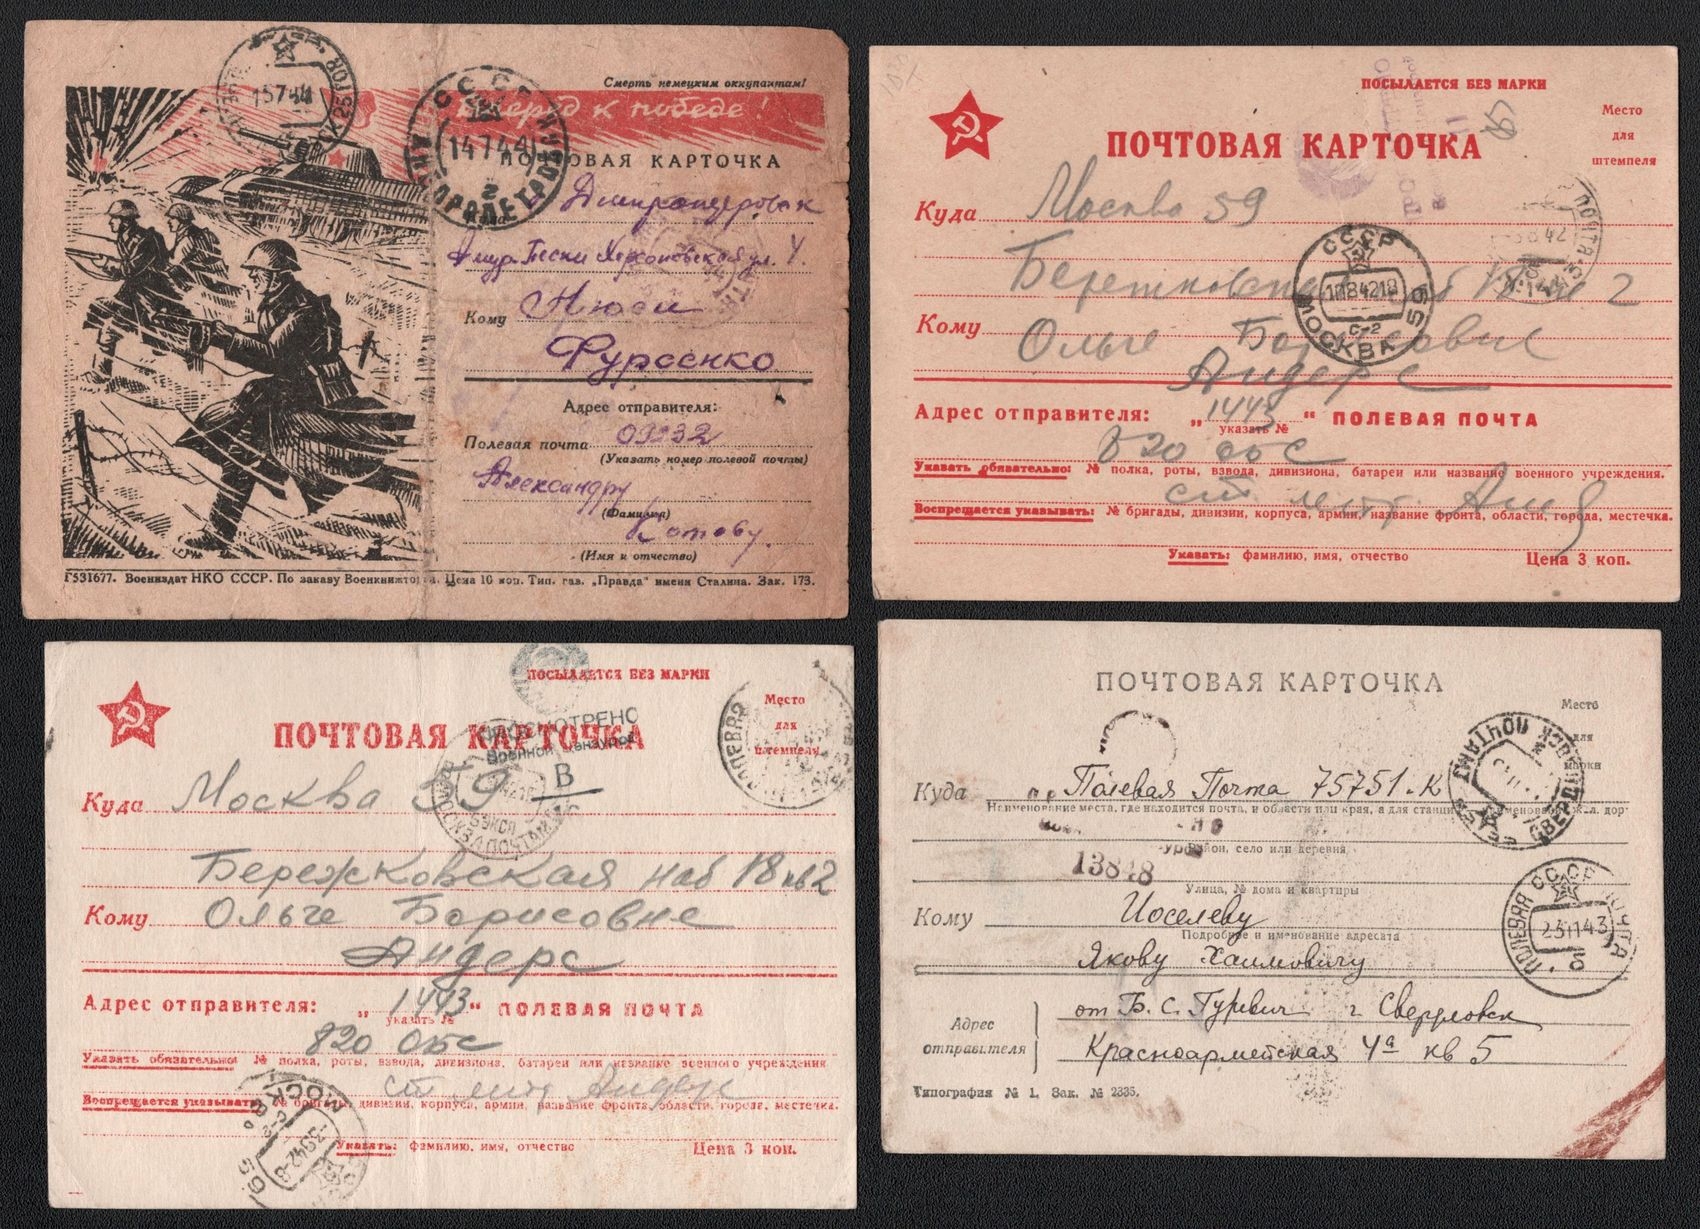 Смерть немецким оккупантам!
Вперед к победе!
ПОЧТОВАЯ КАРТОЧКА
СССР
14744
2
15744
Куда
Амур Пески Херсоновская ул. 4.
Кому Нюси
Фурсенко
Адрес отправителя:
Полевая почта
(Указать номер полевой почты)
Александру
(Фамилия)
Котову.
(Имя и отчество)
Г531677. Воениздат НКО СССР. По заказу Военкнижторга. Цена 10 коп. Тип. газ. „Правда" имени Сталина. Зак. 173.
ПОСЫЛАЕТСЯ БЕЗ МАРКИ
Место
для
штемпеля
ПОЧТОВАЯ КАРТОЧКА
Куда Москва 59
2
СССР
МОСКВА 59
С-2
Кому Ольге Борисовне
Андерс
Адрес отправителя: „1443" ПОЛЕВАЯ ПОЧТА
указать №
820 обс
Указать обязательно: № полка, роты, взвода, дивизиона, батареи или название военного учреждения.
ст лтт
Воспрещается указывать: № бригады, дивизии, корпуса, армии, название фронта, области, города, местечка.
Указать: фамилию, имя, отчество
Цена 3 коп.
ПОСЫЛАЕТСЯ БЕЗ МАРКИ
Место
для
штемпеля
ПОЧТОВАЯ КАРТОЧКА
ПРОСМОТРЕНО
Военной Цензурой
В
ПОЛЕВАЯ
Куда Москва 59
Бережковская наб 18 кв 2
Кому Ольге Борисовне
Андерс
Адрес отправителя: „1443" ПОЛЕВАЯ ПОЧТА
указать №
820 обс
Указать обязательно: № полка, роты, взвода, дивизиона, батареи или название военного учреждения
ст лтт Андерс
Воспрещается указывать: № бригады, дивизии, корпуса, армии, название фронта, области, города, местечка.
Указать: фамилию, имя, отчество
Цена 3 коп.
МОСКВА 59
ПОЧТОВАЯ КАРТОЧКА
Место
для
марки
СВЕРДЛОВСК ПОЧТАМТ
Куда Полевая Почта 75751-К
Наименование места, где находится почта, и области или края, а для станций наименование ж.-д. дор
Район, село или деревня
13848
Улица, № дома и квартиры
Кому Иоселеву
Подробное и именование адресата
Якову Хаимовичу
ПОЛЕВАЯ СССР ПОЧТА
231143
Адрес
отправителя
от Б. С. Гуревич г Свердловск
Красноармейская 4а кв 5
Типография № 1. Зак. № 2335.